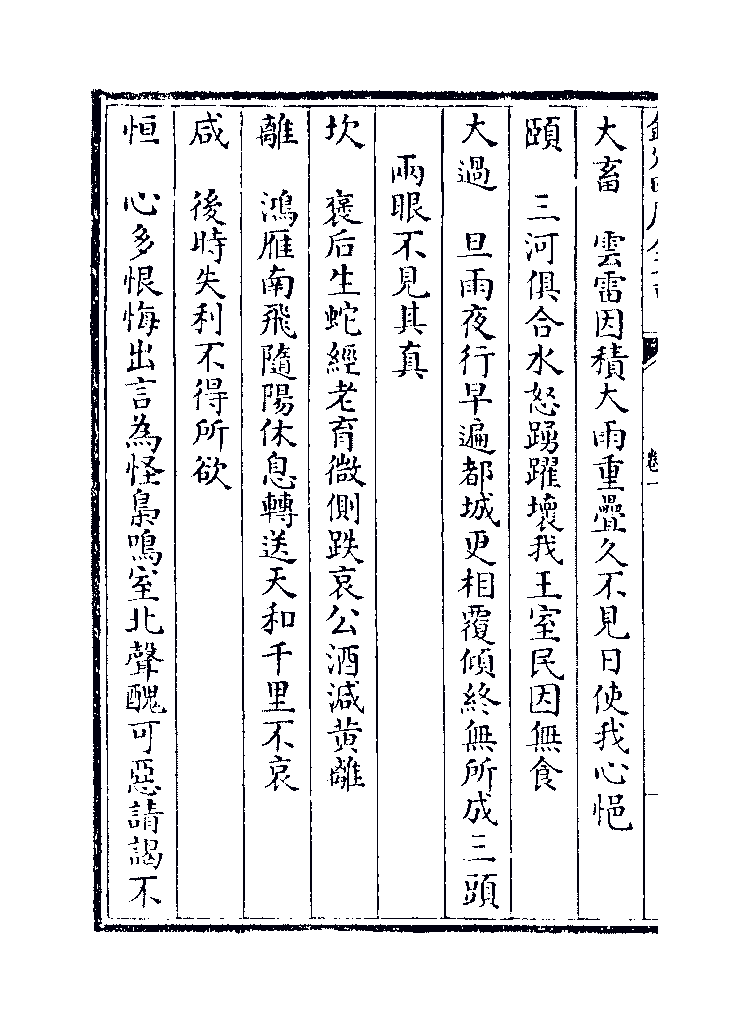 大畜　雲雷因積大雨重疊久不見日使我心悒
頤　三河俱合水怒踴躍壞我王室民因無食
大過　旦雨夜行早遍都城更相覆傾終無所成三頭
兩眼不見其真
坎　褒后生蛇經老育微側跌哀公酒滅黄離
離　鴻雁南飛隨陽休息轉送天和千里不哀
咸　後時失利不得所欲
恒　心多恨悔出言為怪梟鳴室北聲醜可惡請謁不